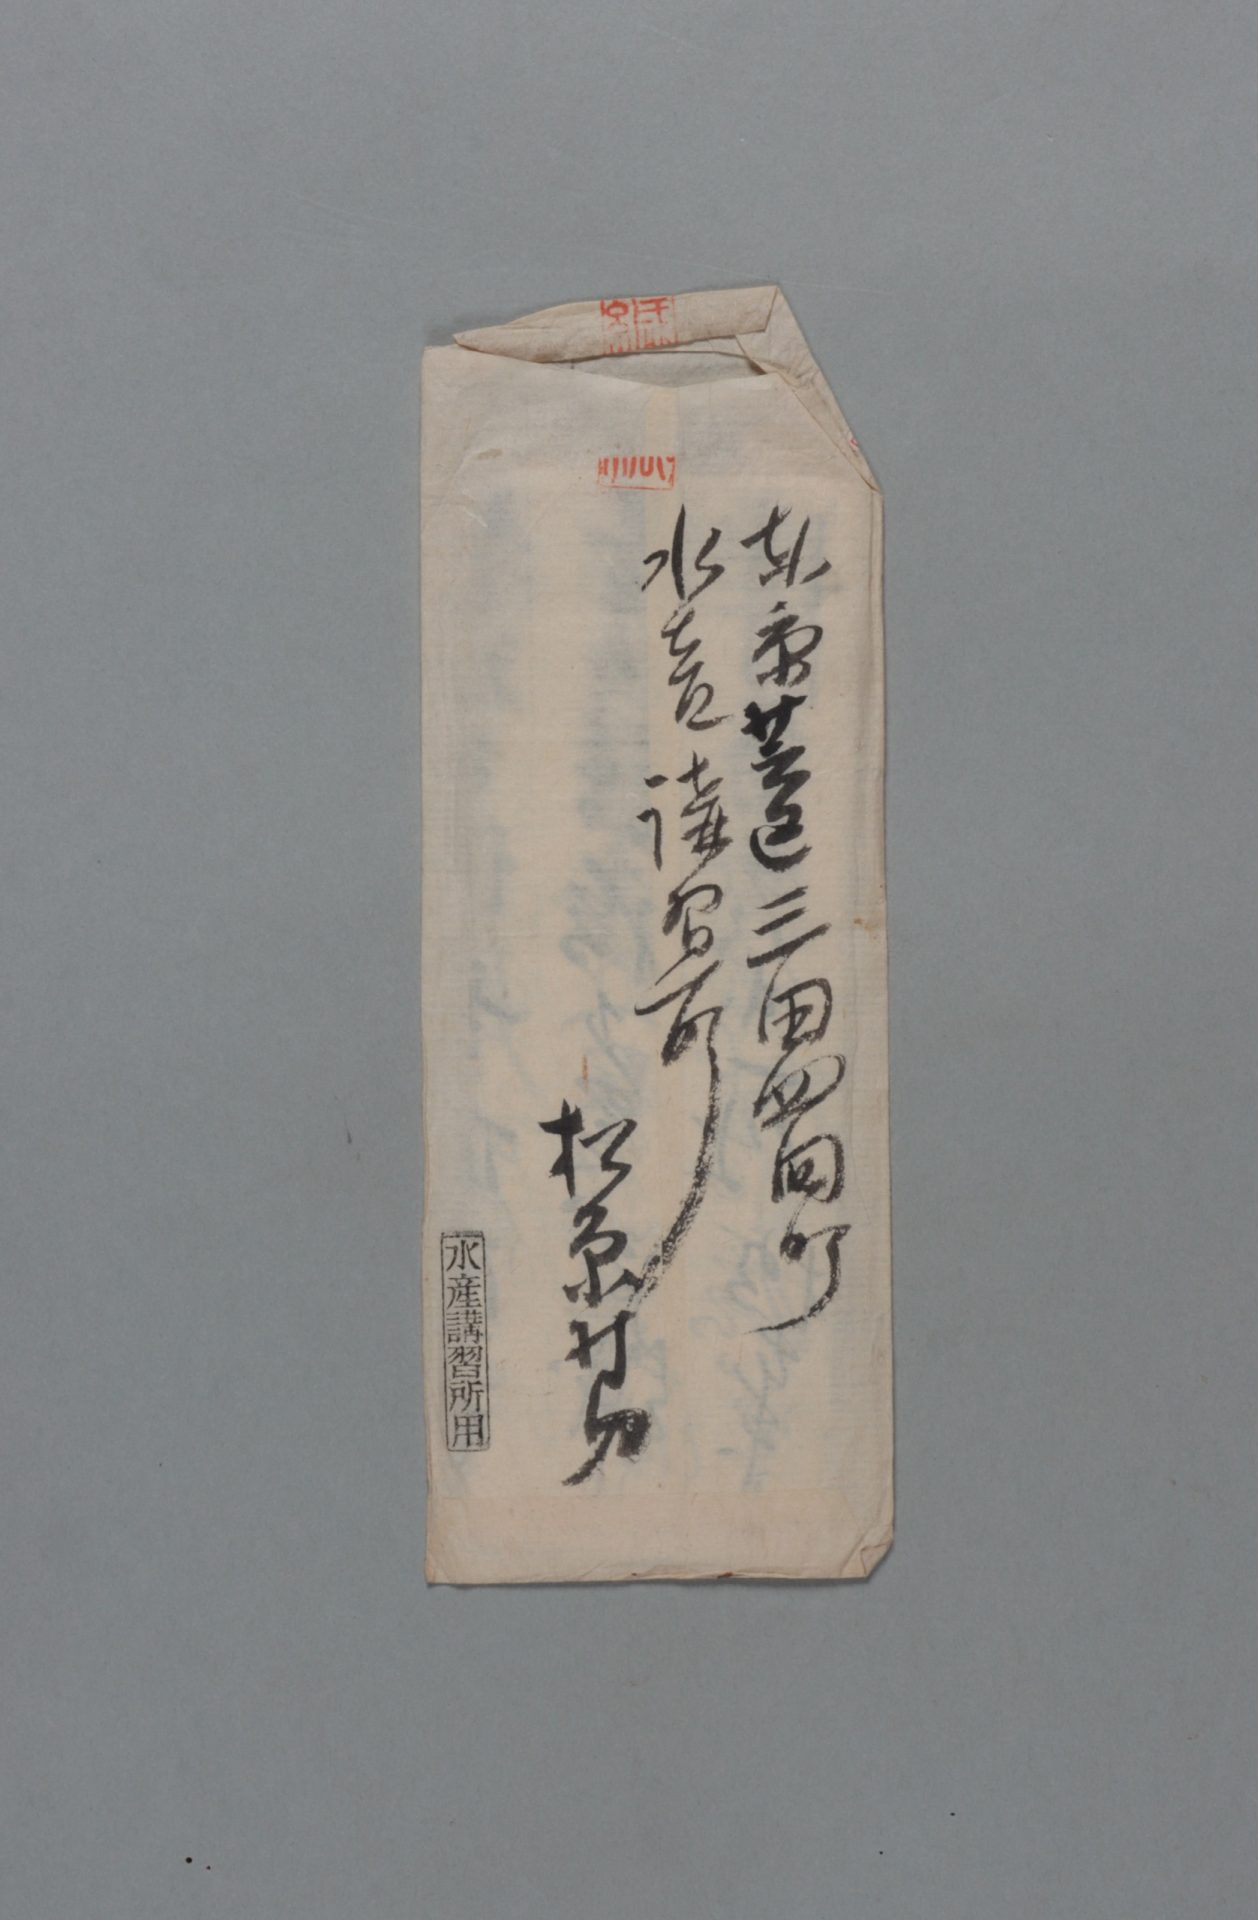 東京芝区三田四国町
水産講習所
松原新
水産講習所用